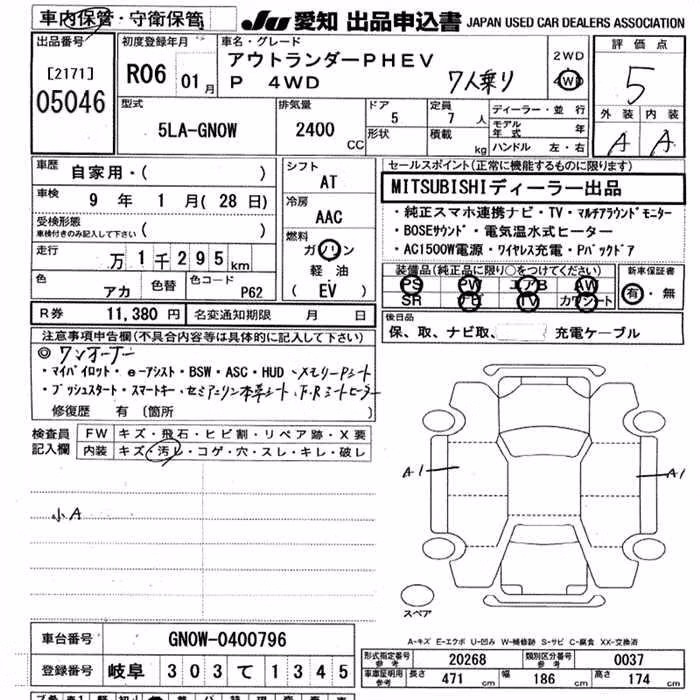 車内保管・守衛保管
JU 愛知 出品申込書 JAPAN USED CAR DEALERS ASSOCIATION
出品番号
[2171]
05046
初度登録年月
R06 01月
車名・グレード
アウトランダーPHEV
P 4WD 7人乗り
2WD
4WD
評価点
5
外装 内装
A A
型式
5LA-GN0W
排気量
2400 CC
ドア
5
形状
定員
7人
積載
kg
ディーラー・並行
モデル年式 年
ハンドル 左・右
車歴 自家用・( )
車検 9年 1月(28日)
受検形態
車検付きのみ記入して下さい ( )
走行 万1千295km
色 アカ 色替 色コード P62
シフト
AT
冷房
AAC
燃料
ガソリン
軽油
( EV )
セールスポイント(正常に機能するものに限ります)
MITSUBISHIディーラー出品
・純正スマホ連携ナビ・TV・マルチアラウンドモニター
・BOSEサウンド・電気温水式ヒーター
・AC1500W電源・ワイヤレス充電・Pバックドア
装備品(純正品に限り○をつけてください)
PS PW エアB AW
SR ナビ TV カワシート
新車保証書
有・無
R券 11,380円 名変通知期限 月 日
後日品
保、取、ナビ取、 充電ケーブル
注意事項申告欄(不具合内容等は具体的に記入して下さい)
◎ワンオーナー
・マイパイロット・e-アシスト・BSW・ASC・HUD・メモリーPシート
・プッシュスタート・スマートキー・セミアニリン本革シート・F.Rシートヒーター
修復歴 有(箇所 )
検査員記入欄
FW キズ・飛石・ヒビ割・リペア跡・X要
内装 キズ・汚レ・コゲ・穴・スレ・キレ・破レ
小A
A1
A1
スペア
A-キズ E-エクボ U-凹み W-補修跡 S-サビ C-腐食 XX-交換済
車台番号 GN0W-0400796
登録番号 岐阜 303 て 1345
形式指定番号 参考 20268 類別区分番号 参考 0037
車車証明用 参考 長さ 471cm 幅 186cm 高さ 174cm